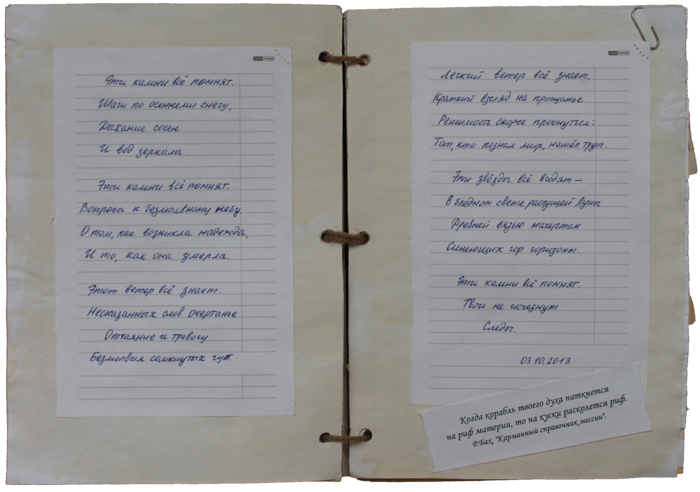 Эти камни всё помнят.
Шаги по осеннему снегу,
Дыхание сосен
И вод зеркала.
Эти камни всё помнят.
Вопросы к безмолвному небу.
О том, как возникла надежда,
И то, как она умерла.
Этот ветер всё знает.
Несказанных слов очертанье
Отчаяние и тревогу
Безмолвия сомкнутых губ.
Лёгкий ветер всё знает.
Краткий взгляд на прощанье
Решимость скорее проснуться:
Тот, кто познал мир, нашёл труп.
Эти звёзды всё видят —
В бледном свете растущей Луны
Древней вязью начертан
Синеющих гор горизонт.
Эти камни всё помнят.
Твои не исчезнут
Следы.
03.10.2013
Когда корабль твоего духа наткнется
на риф материи, то на куски расколется риф.
Р.Бах, "Карманный справочник мессии".